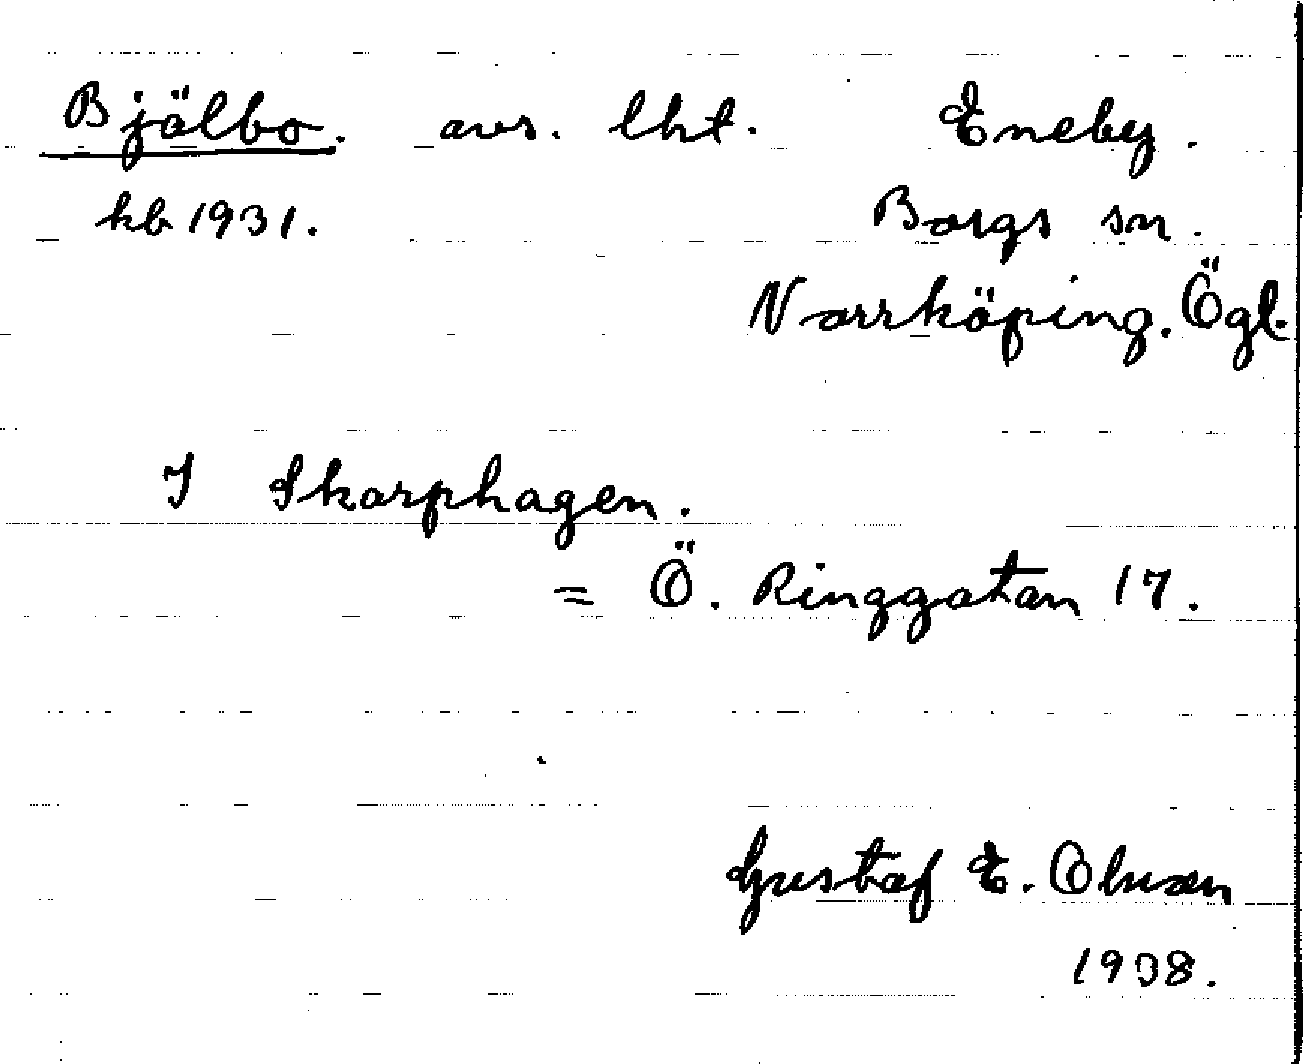 Bjälbo. avs. lht. Eneby.
kb 1931. Borgs sn.
Norrköping. Ögl.
I Skarphagen.
= Ö. Ringgatan 17.
Gustaf E. Olsson
1938.